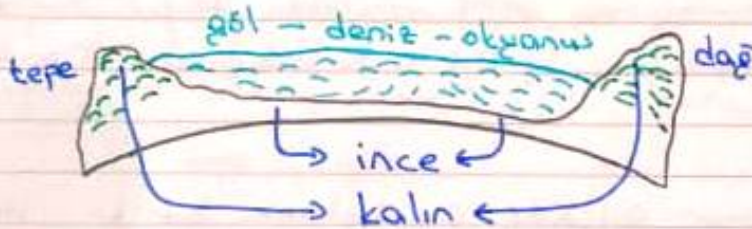 göl - deniz - okyanus
tepe
dağ
ince
kalın